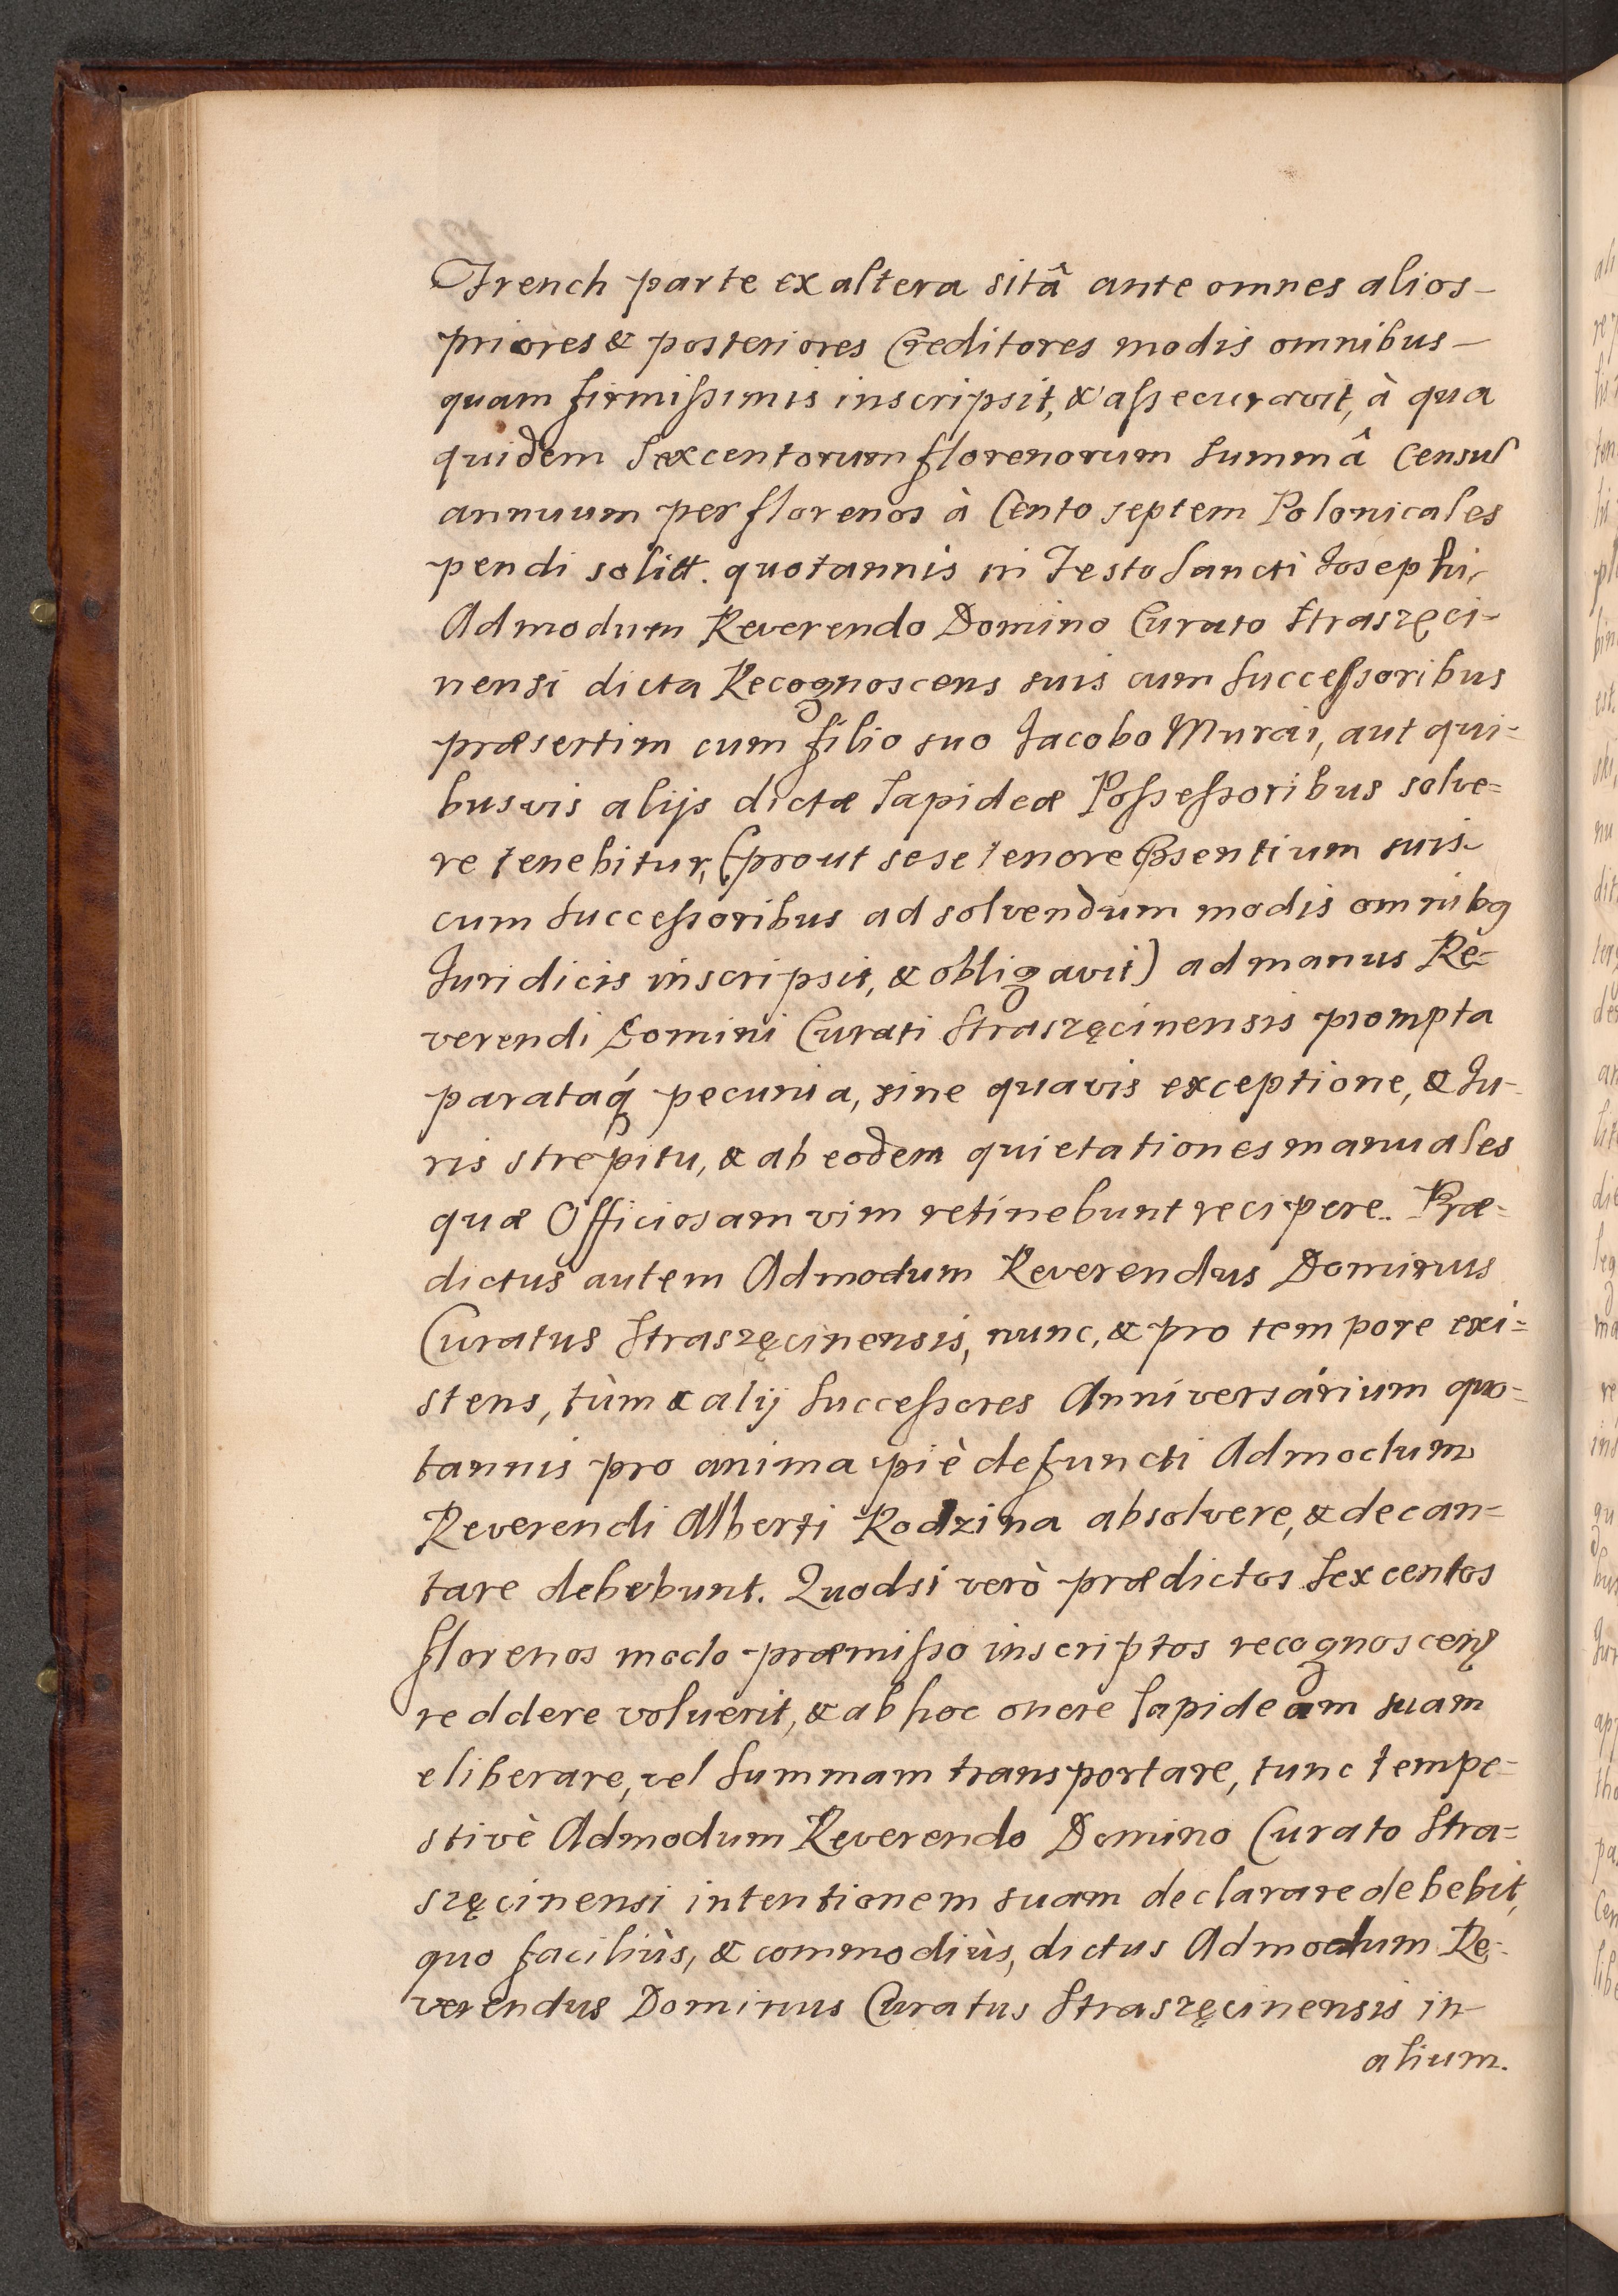 French parte ex altera sitâ ante omnes alios
priores & posteriores Creditores modis omnibus
quam firmissimis inscripsit, & assecuravit, à qua
quidem Sexcentorum florenorum Summâ Censuʃ
annuum per florenos à Cento septem Polonicales
pendi solitt. quotannis in Festo Sancti Josephi,
Admodum Reverendo Domino Curato Straszęci-
nensi dicta Recognoscens suis cum Successoribus
præsertim cum filio suo Jacobo Murai, aut qui-
busvis alijs dictæ Lapideæ Possessoribus solve=
re tenebitur, (prout sese tenore Psentium suis
cum Successoribus ad solvendum modis omnibq
Juridicis inscripsit, & obligavit) ad manus Re=
verendi Domini Curati Straszęcinensis prompta
parataq́ pecunia, sine quavis exceptione, & Ju-
ris strepitu, & ab eodem quietationes manuales
quæ Officiosam vim retinebunt recipere. Præ-
dictus autem Admodum Reverendus Dominus
Curatus Straszęcinensis, nunc, & pro tempore exi=
stens, tùm & alij Successores Anniversárium quo=
tannis pro anima piè defuncti Admodum
Reverendi Alberti Rodzina absolvere, & decan=
tare debebunt. Quodsi verò prædictos Sexcentos
florenos modo præmisso inscriptos recognoscens
reddere voluerit, & ab hoc onere Lapideam suam
eliberare, vel Summam transportare, tunc tempe=
stivè Admodum Reverendo Domino Curato Stra=
szęcinensi intentionem suam declarare debebit,
quo faciliùs, & commodiùs, dictus Admodum Re-
verendus Dominus Curatus Straszęcinensis in
alium.